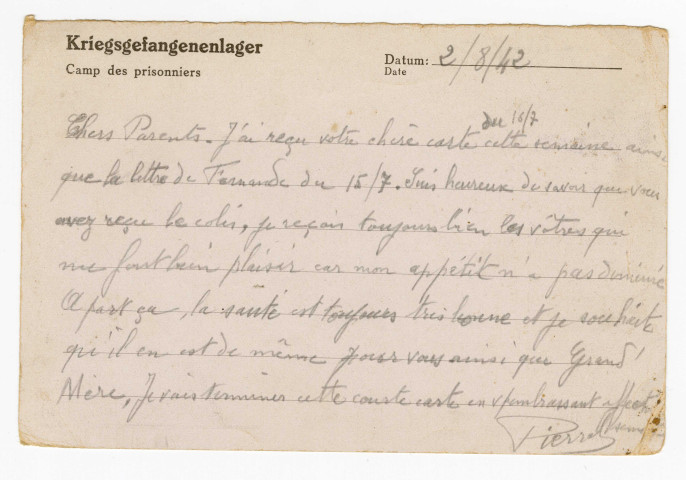 Kriegsgefangenenlager
Camp des prisonniers
Datum: 2/8/42
Date
du 16/7
Chers Parents. J'ai reçu votre chère carte cette semaine ainsi
que la lettre de Fernande du 15/7. Suis heureux de savoir que vous
avez reçu le colis, je reçois toujours bien les vôtres qui
me font bien plaisir car mon appétit n'a pas diminué
A part ça la santé est toujours très bonne et je souhaite
qu'il en est de même pour vous ainsi que Grand'
Mère, Je vais terminer cette courte carte en v/embrassant affect
Pierre